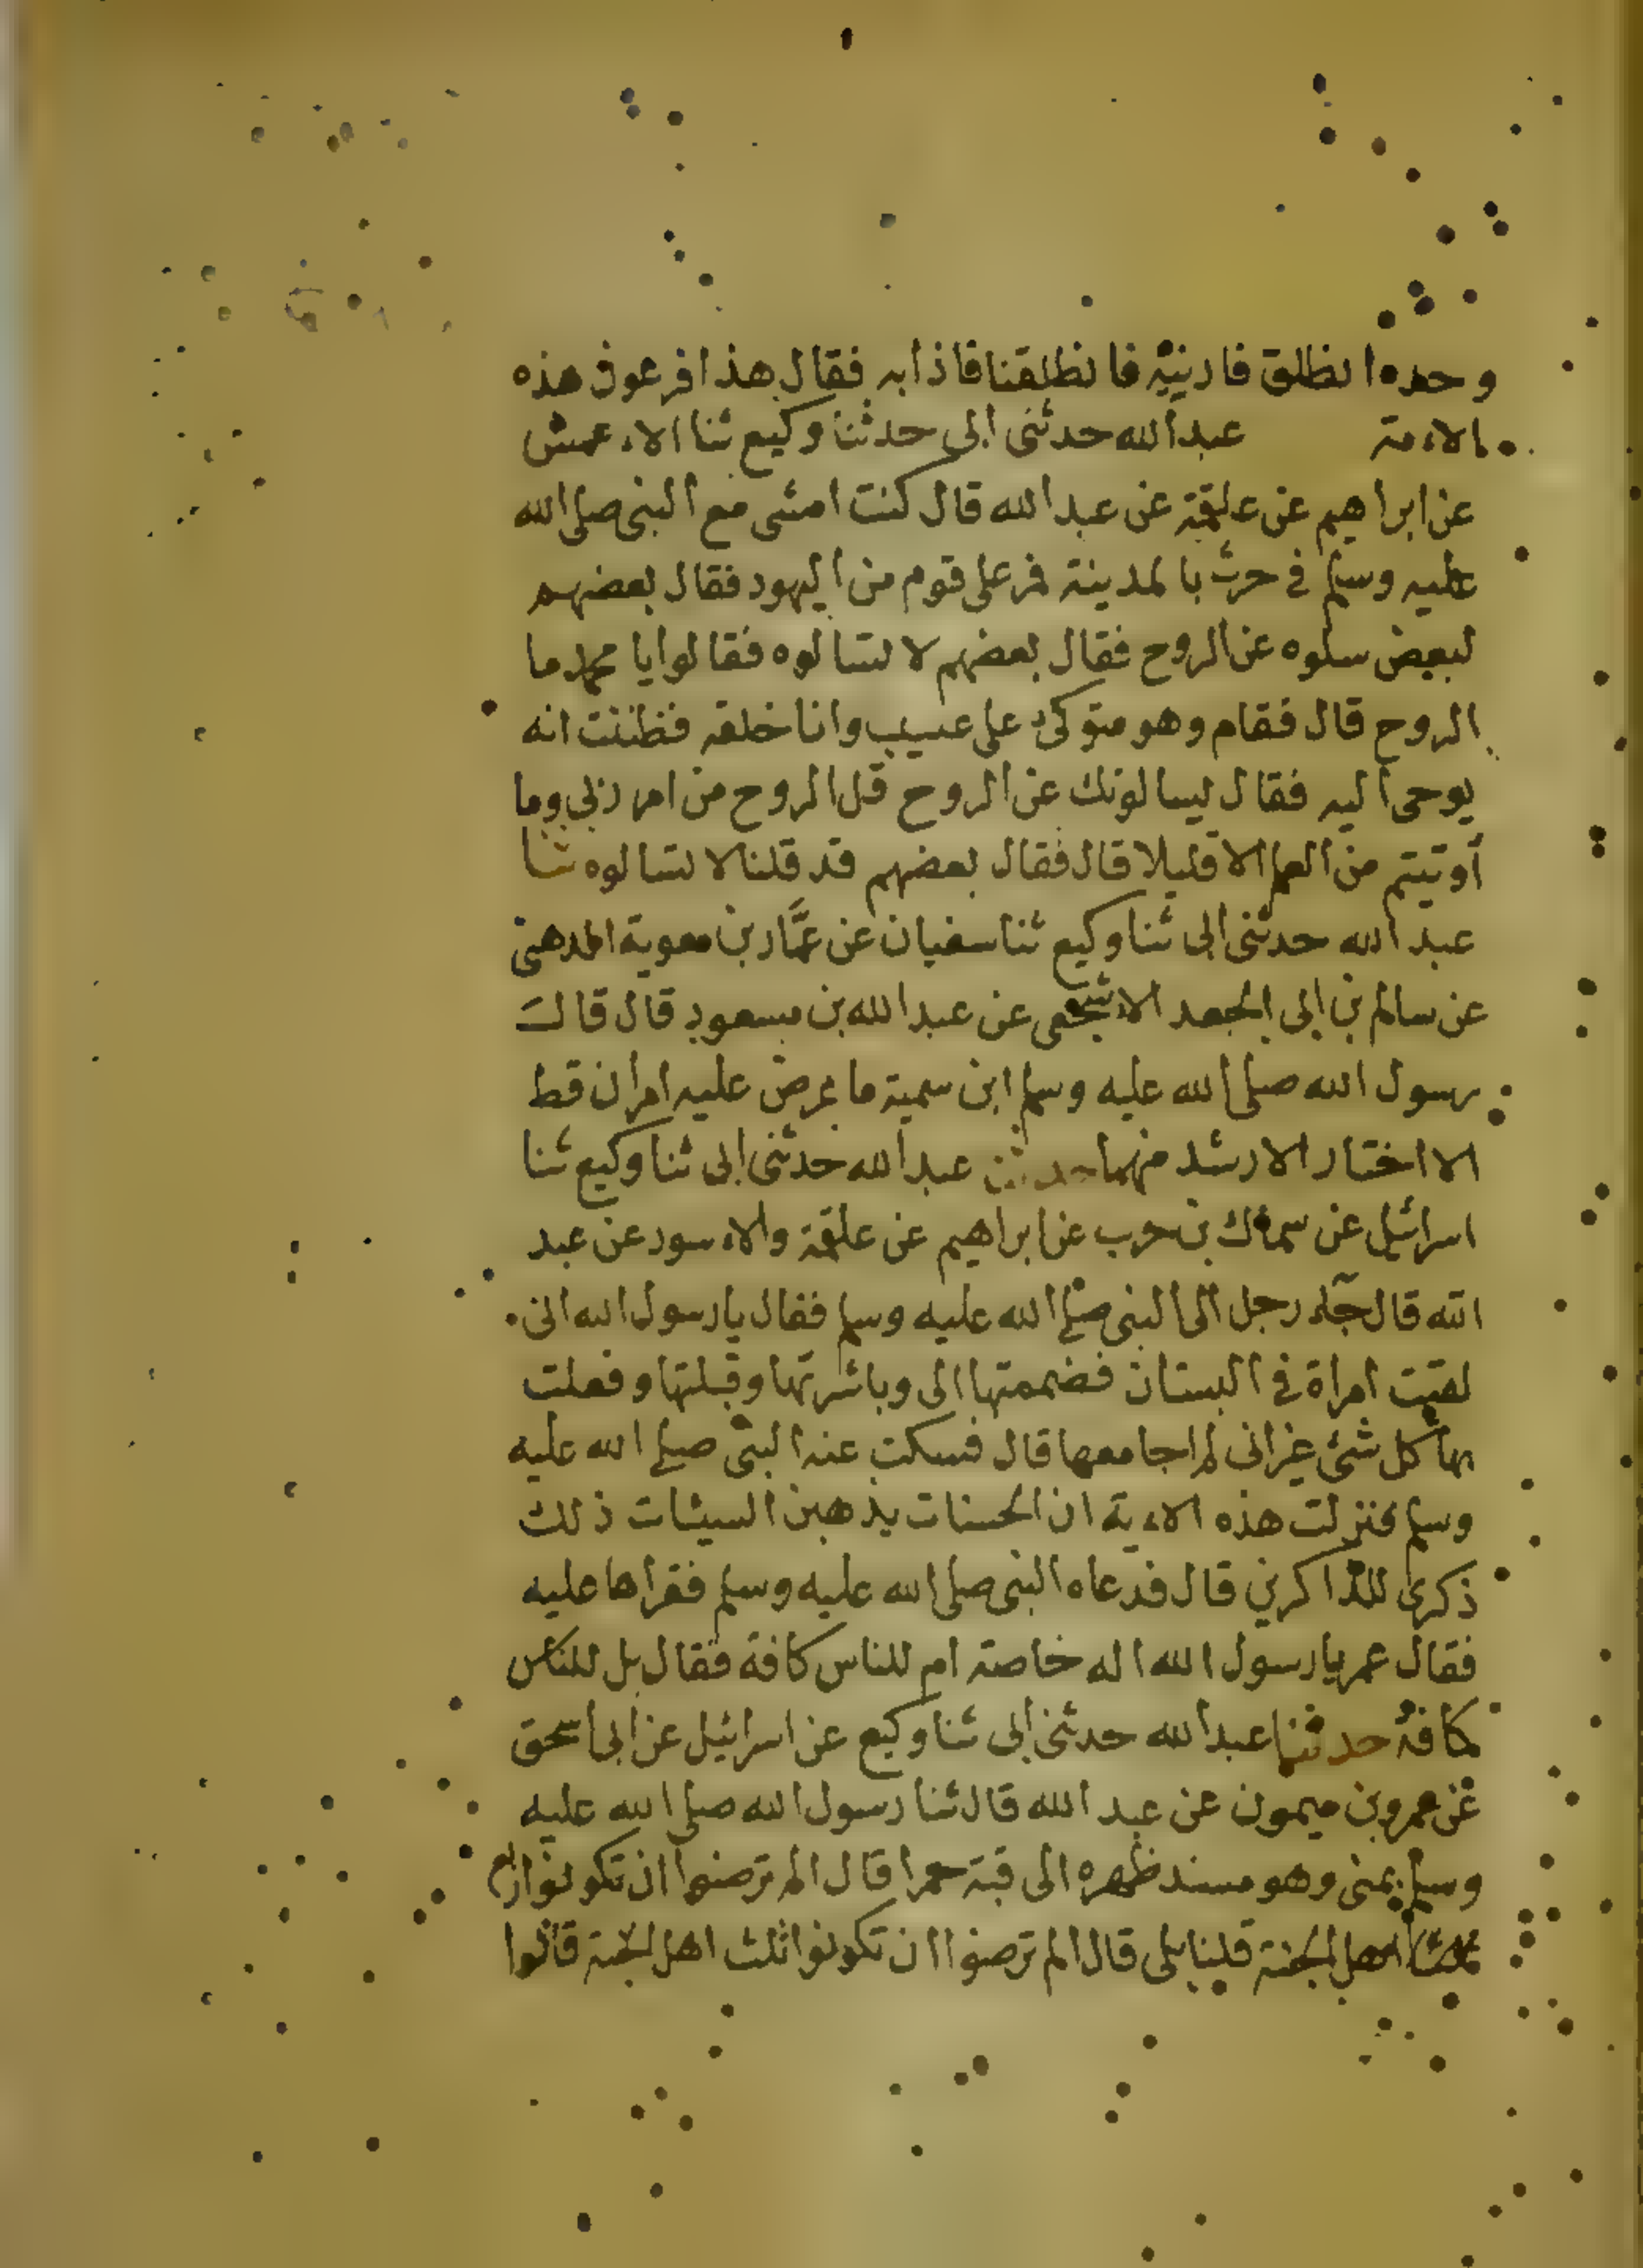 وحده انطلق فارنيه فانطلقنا فاذا به فقال هذا فرعون هذه
الاءمة عبد الله حدثنى ابى حدثنا وكيع ثنا الاءعمش
عن ابراهيم عن علقمة عن عبد الله قال كنت امشى مع النبى صلى الله
عليه وسلم فى حرث بالمدينة فمر على قوم من اليهود فقال بعضهم
لبعض سلوه عن الروح فقال بعضهم لا تسالوه فقالوا يا محمد ما
الروح قال فقام وهو متوكئ على عسيب وانا خلفه فظننت انه
يوحى اليه فقال ليسالونك عن الروح قل الروح من امر ربى وما
اوتيتم من العلم الا قليلا قال فقال بعضهم قد قلنا لا تسالوه ثنا
عبد الله حدثنى ابى ثنا وكيع ثنا سفيان عن عمَّار بن معوية الدهنى
عن سالم بن ابى الجعد الاءشجعى عن عبد الله بن مسعود قال قال
رسول الله صلى الله عليه وسلم ابن سمية ما عرض عليه امران قط
الا اختار الارشد منهما حدثنا عبد الله حدثنى ابى ثنا وكيع ثنا
اسرائيل عن سماك بن حرب عن ابراهيم عن علقمة والاءسود عن عبد
الله قال جآء رجل الى النبى صلى الله عليه وسلم فقال يا رسول الله انى
لقيت امراة فى البستان فضممتها الى وباشرتها وقبلتها وفعلت
بها كل شئ غير انى لم اجامعها قال فسكت عنه النبى صلى الله عليه
وسلم فنزلت هذه الاءية ان الحسنات يذهبن السيئات ذلك
ذكرى للذاكرين قال فدعاه النبى صلى الله عليه وسلم فقراها عليه
فقال عمر يا رسول الله اله خاصة ام للناس كافة فقال بل للناس
كافة حدثنا عبد الله حدثنى ابى ثنا وكيع عن اسرائيل عن ابى اسحق
عن عمرو بن ميمون عن عبد الله قال ثنا رسول الله صلى الله عليه
وسلم بمنى وهو مسند ظهره الى قبة حمرا قال الم ترضوا ان تكونوا ربع
اهل الجنة قلنا بلى قال الم ترضوا ان تكونوا ثلث اهل الجنة قالوا